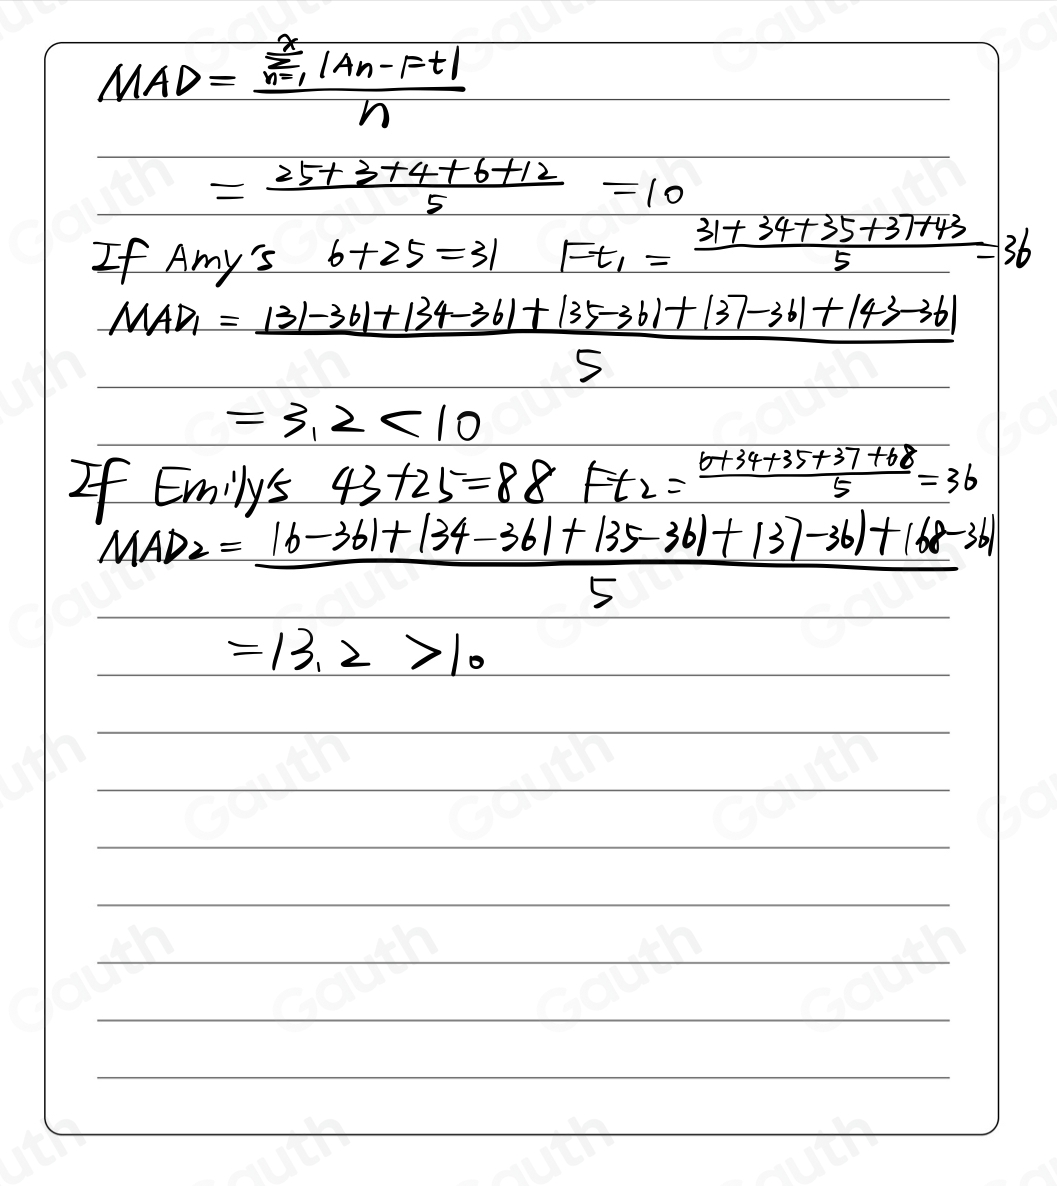 MAD = \frac{\sum_{n=1}^{x} |An - Ft|}{n}
= \frac{25+3+4+6+12}{5} = 10
If Amy's 6+25=31 Ft₁ = \frac{31+34+35+37+43}{5} = 36
MAD₁ = \frac{|31-36|+|34-36|+|35-36|+|37-36|+|43-36|}{5}
= 3.2 < 10
If Emily's 43+25=88 Ft₂ = \frac{6+34+35+37+68}{5} = 36
MAD₂ = \frac{|6-36|+|34-36|+|35-36|+|37-36|+|68-36|}{5}
= 13.2 > 10
Gauth